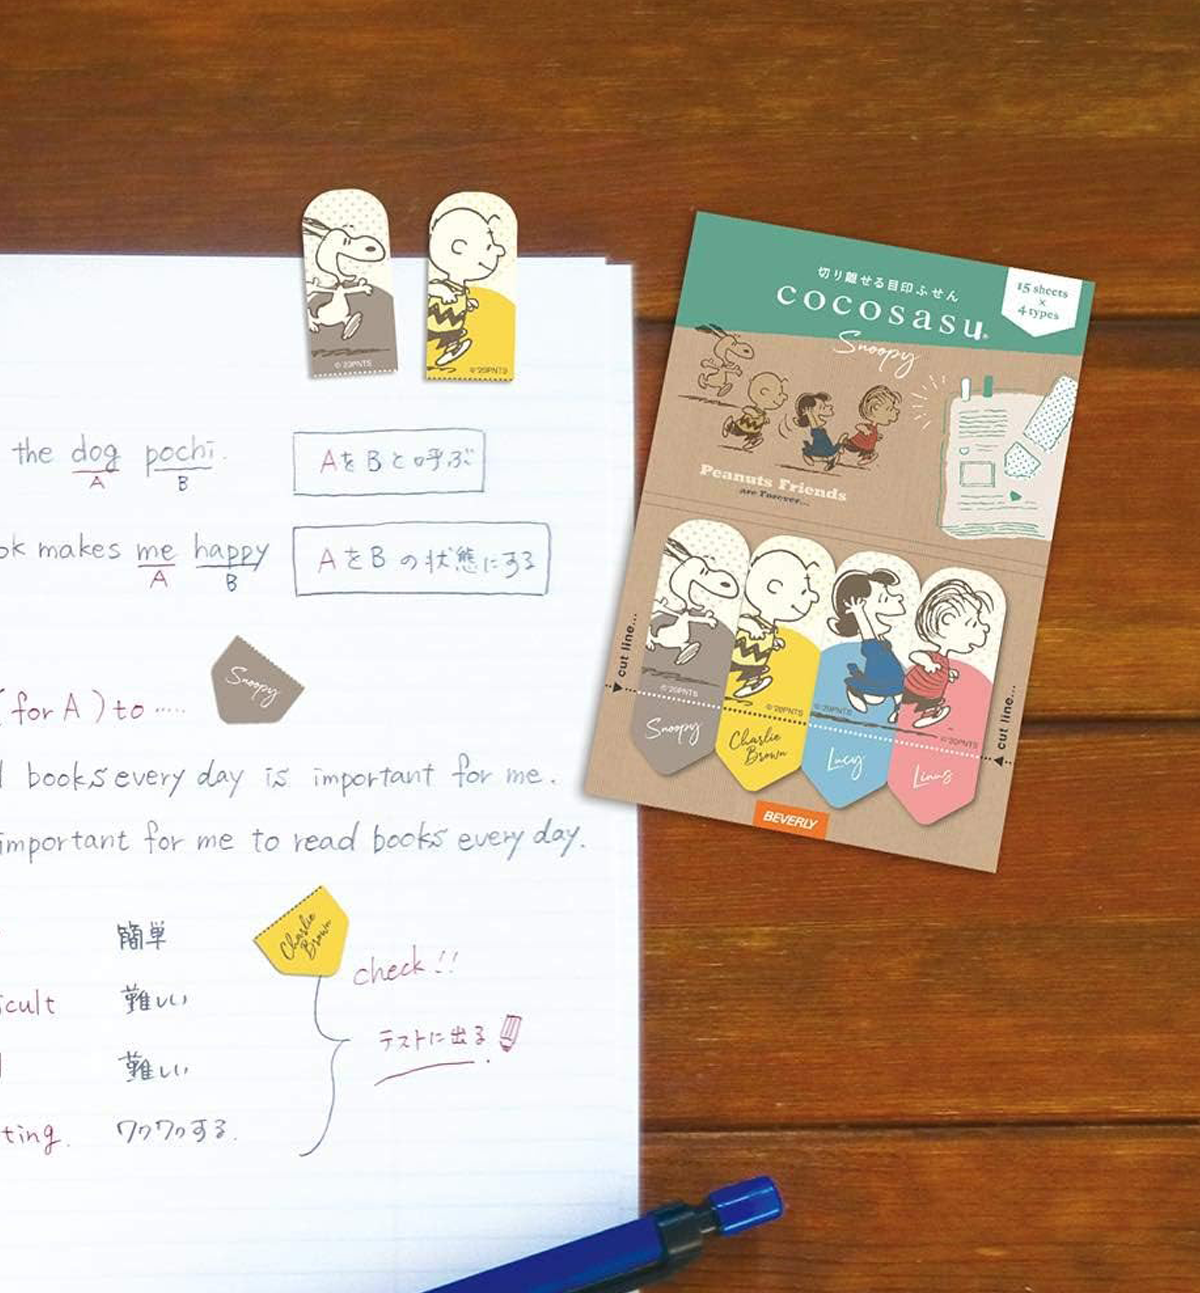 © '20PNTS
© '20PNTS
the dog pochi.
A B
AをBと呼ぶ
ok makes me happy
A B
AをBの状態にする
Snoopy
(for A) to .....
books every day is important for me.
important for me to read books every day.
簡単
Charlie
Brown
check!!
icult 難しい
テストに出る
難しい
ting. ワクワクする.
切り離せる目印ふせん
cocosasu®
Snoopy
15 sheets
×
4 types
Peanuts Friends
are Forever...
cut line...
© '20PNTS
© '20PNTS
© '20PNTS
© '20PNTS
cut line...
Snoopy
Charlie
Brown
Lucy
Linus
BEVERLY